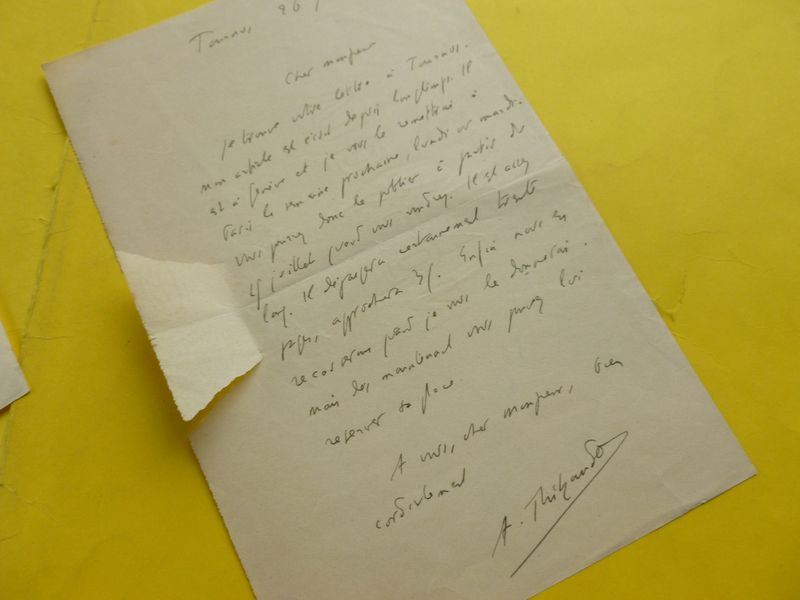 Tournus, 26
Cher monsieur
Je trouve votre lettre à Tournus.
mon article est écrit depuis longtemps. Il
est à Genève et je vous le remettrai à
Paris la semaine prochaine, lundi ou mardi.
Vous pouvez donc le publier à partir du
15 juillet quand vous voudrez. Il est assez
long. Il dépassera certainement trente
pages, approchera 35. Enfin nous en
recauserons quand je vous le donnerai.
mais dès maintenant vous pouvez lui
réserver sa place.
A vous, cher monsieur, bien
cordialement
A. Thibaudet